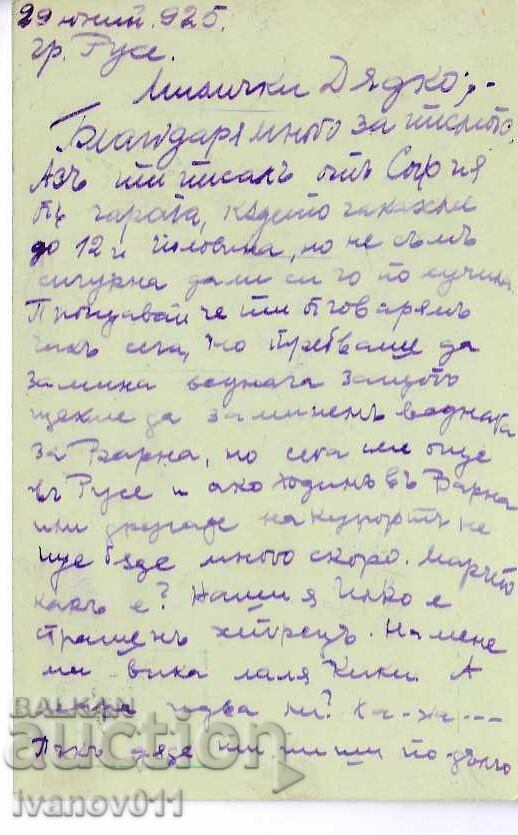 29 юний. 925.
гр. Русе.
Милички Дядко;-
Благодаря много за писмото,
Азъ ти писахъ отъ София
въ гарата, където чакахме
до 12 и половина, но не съмъ
сигурна дали си го получила.
Прощавай че ти отговарямъ
чакъ сега, но трѣбваше да
замина веднага защото
щехме да заминемъ веднага
за Варна, но сега сме още
въ Русе и ако ходимъ въ Варна
или другаде на курортъ не
ще бѫде много скоро.
какъ е? Нашия Илко е
страшенъ хитрецъ. На мене
ми вика лаля Кики. А
ха-ха---
Пъкъ дядо ти пиши по-дълго
BALKAN
auction
ivanov011